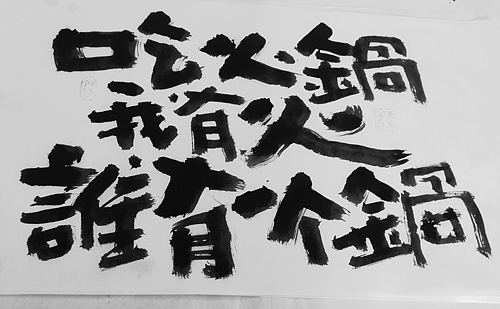 吃火鍋
我有火
誰有个鍋